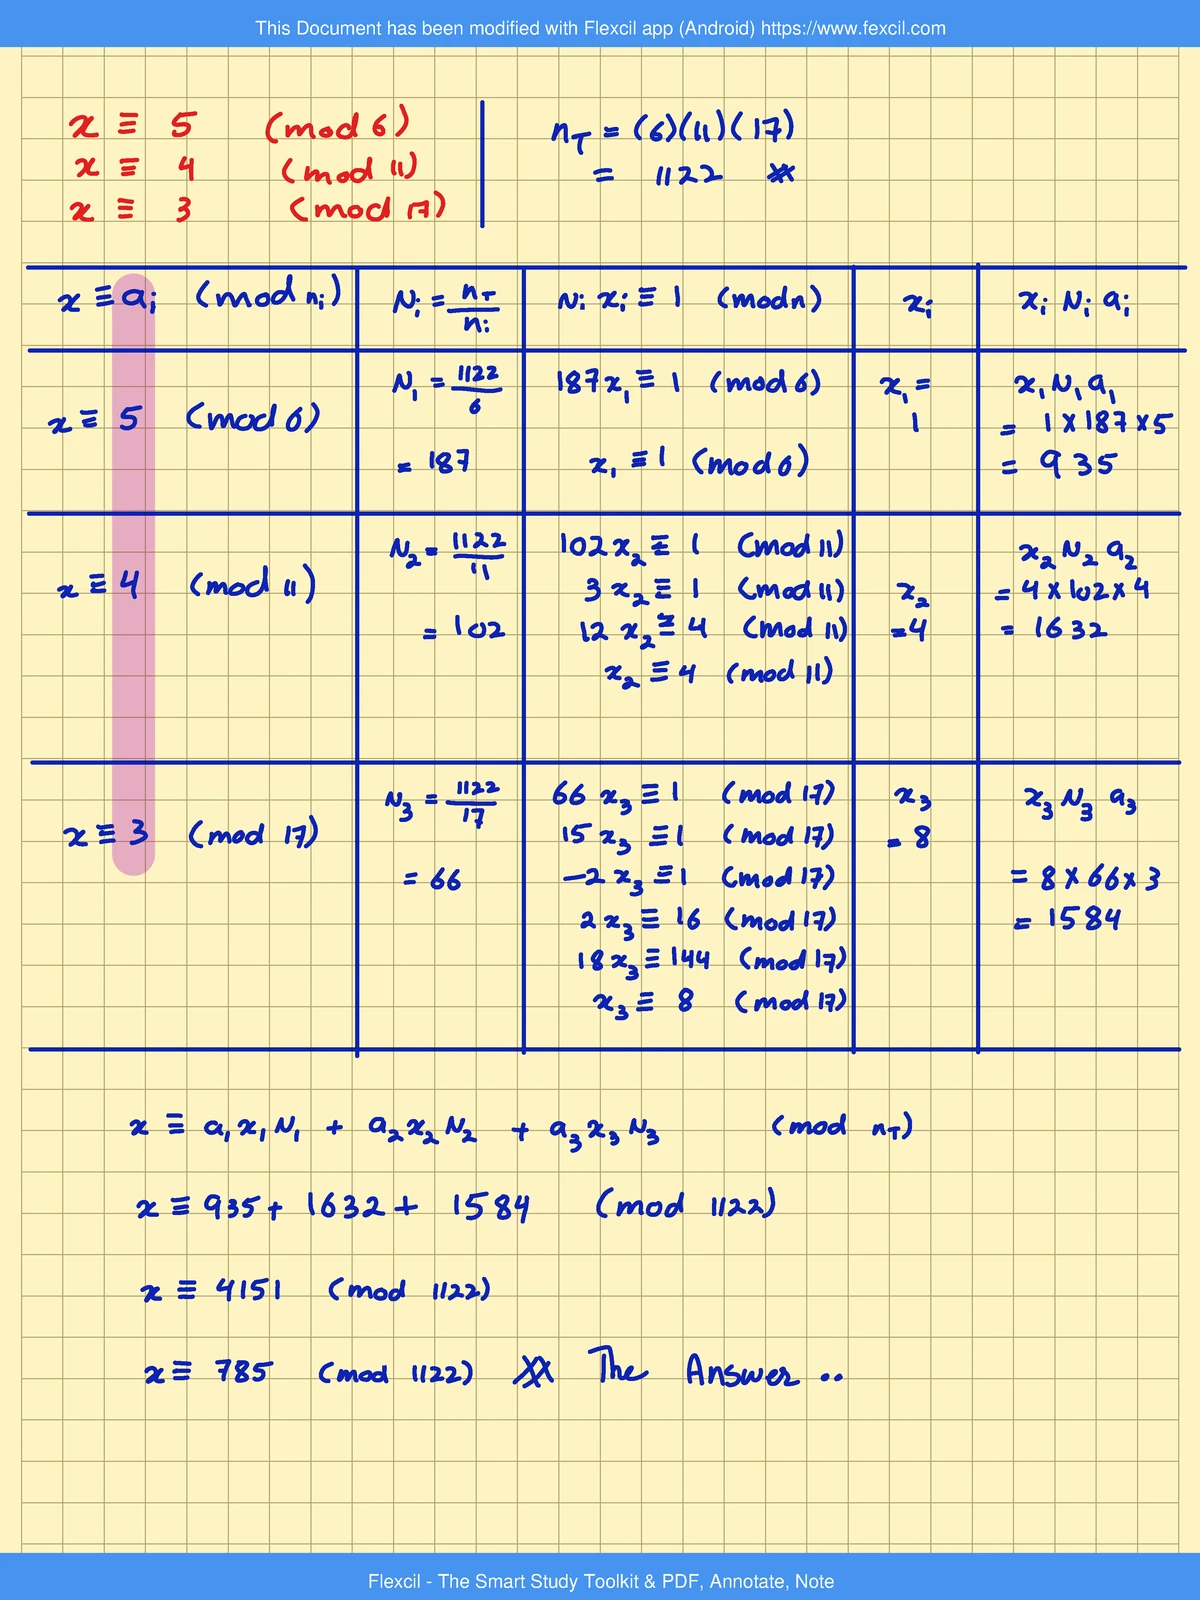 This Document has been modified with Flexcil app (Android) https://www.fexcil.com
x ≡ 5 (mod 6)
x ≡ 4 (mod 11)
x ≡ 3 (mod 17)
n_T = (6)(11)(17)
= 1122 ※
x ≡ a_i (mod n_i)
N_i = n_T / n_i
N_i x_i ≡ 1 (mod n)
x_i
x_i N_i a_i
x ≡ 5 (mod 6)
N_1 = 1122 / 6
= 187
187x_1 ≡ 1 (mod 6)
x_1 ≡ 1 (mod 6)
x_1 =
1
x_1 N_1 a_1
= 1 × 187 × 5
= 935
x ≡ 4 (mod 11)
N_2 = 1122 / 11
= 102
102x_2 ≡ 1 (mod 11)
3x_2 ≡ 1 (mod 11)
12x_2 ≡ 4 (mod 11)
x_2 ≡ 4 (mod 11)
x_2
= 4
x_2 N_2 a_2
= 4 × 102 × 4
= 1632
x ≡ 3 (mod 17)
N_3 = 1122 / 17
= 66
66x_3 ≡ 1 (mod 17)
15x_3 ≡ 1 (mod 17)
−2x_3 ≡ 1 (mod 17)
2x_3 ≡ 16 (mod 17)
18x_3 ≡ 144 (mod 17)
x_3 ≡ 8 (mod 17)
x_3
= 8
x_3 N_3 a_3
= 8 × 66 × 3
= 1584
x ≡ a_1 x_1 N_1 + a_2 x_2 N_2 + a_3 x_3 N_3 (mod n_T)
x ≡ 935 + 1632 + 1584 (mod 1122)
x ≡ 4151 (mod 1122)
x ≡ 785 (mod 1122) ※ The Answer ..
Flexcil - The Smart Study Toolkit & PDF, Annotate, Note